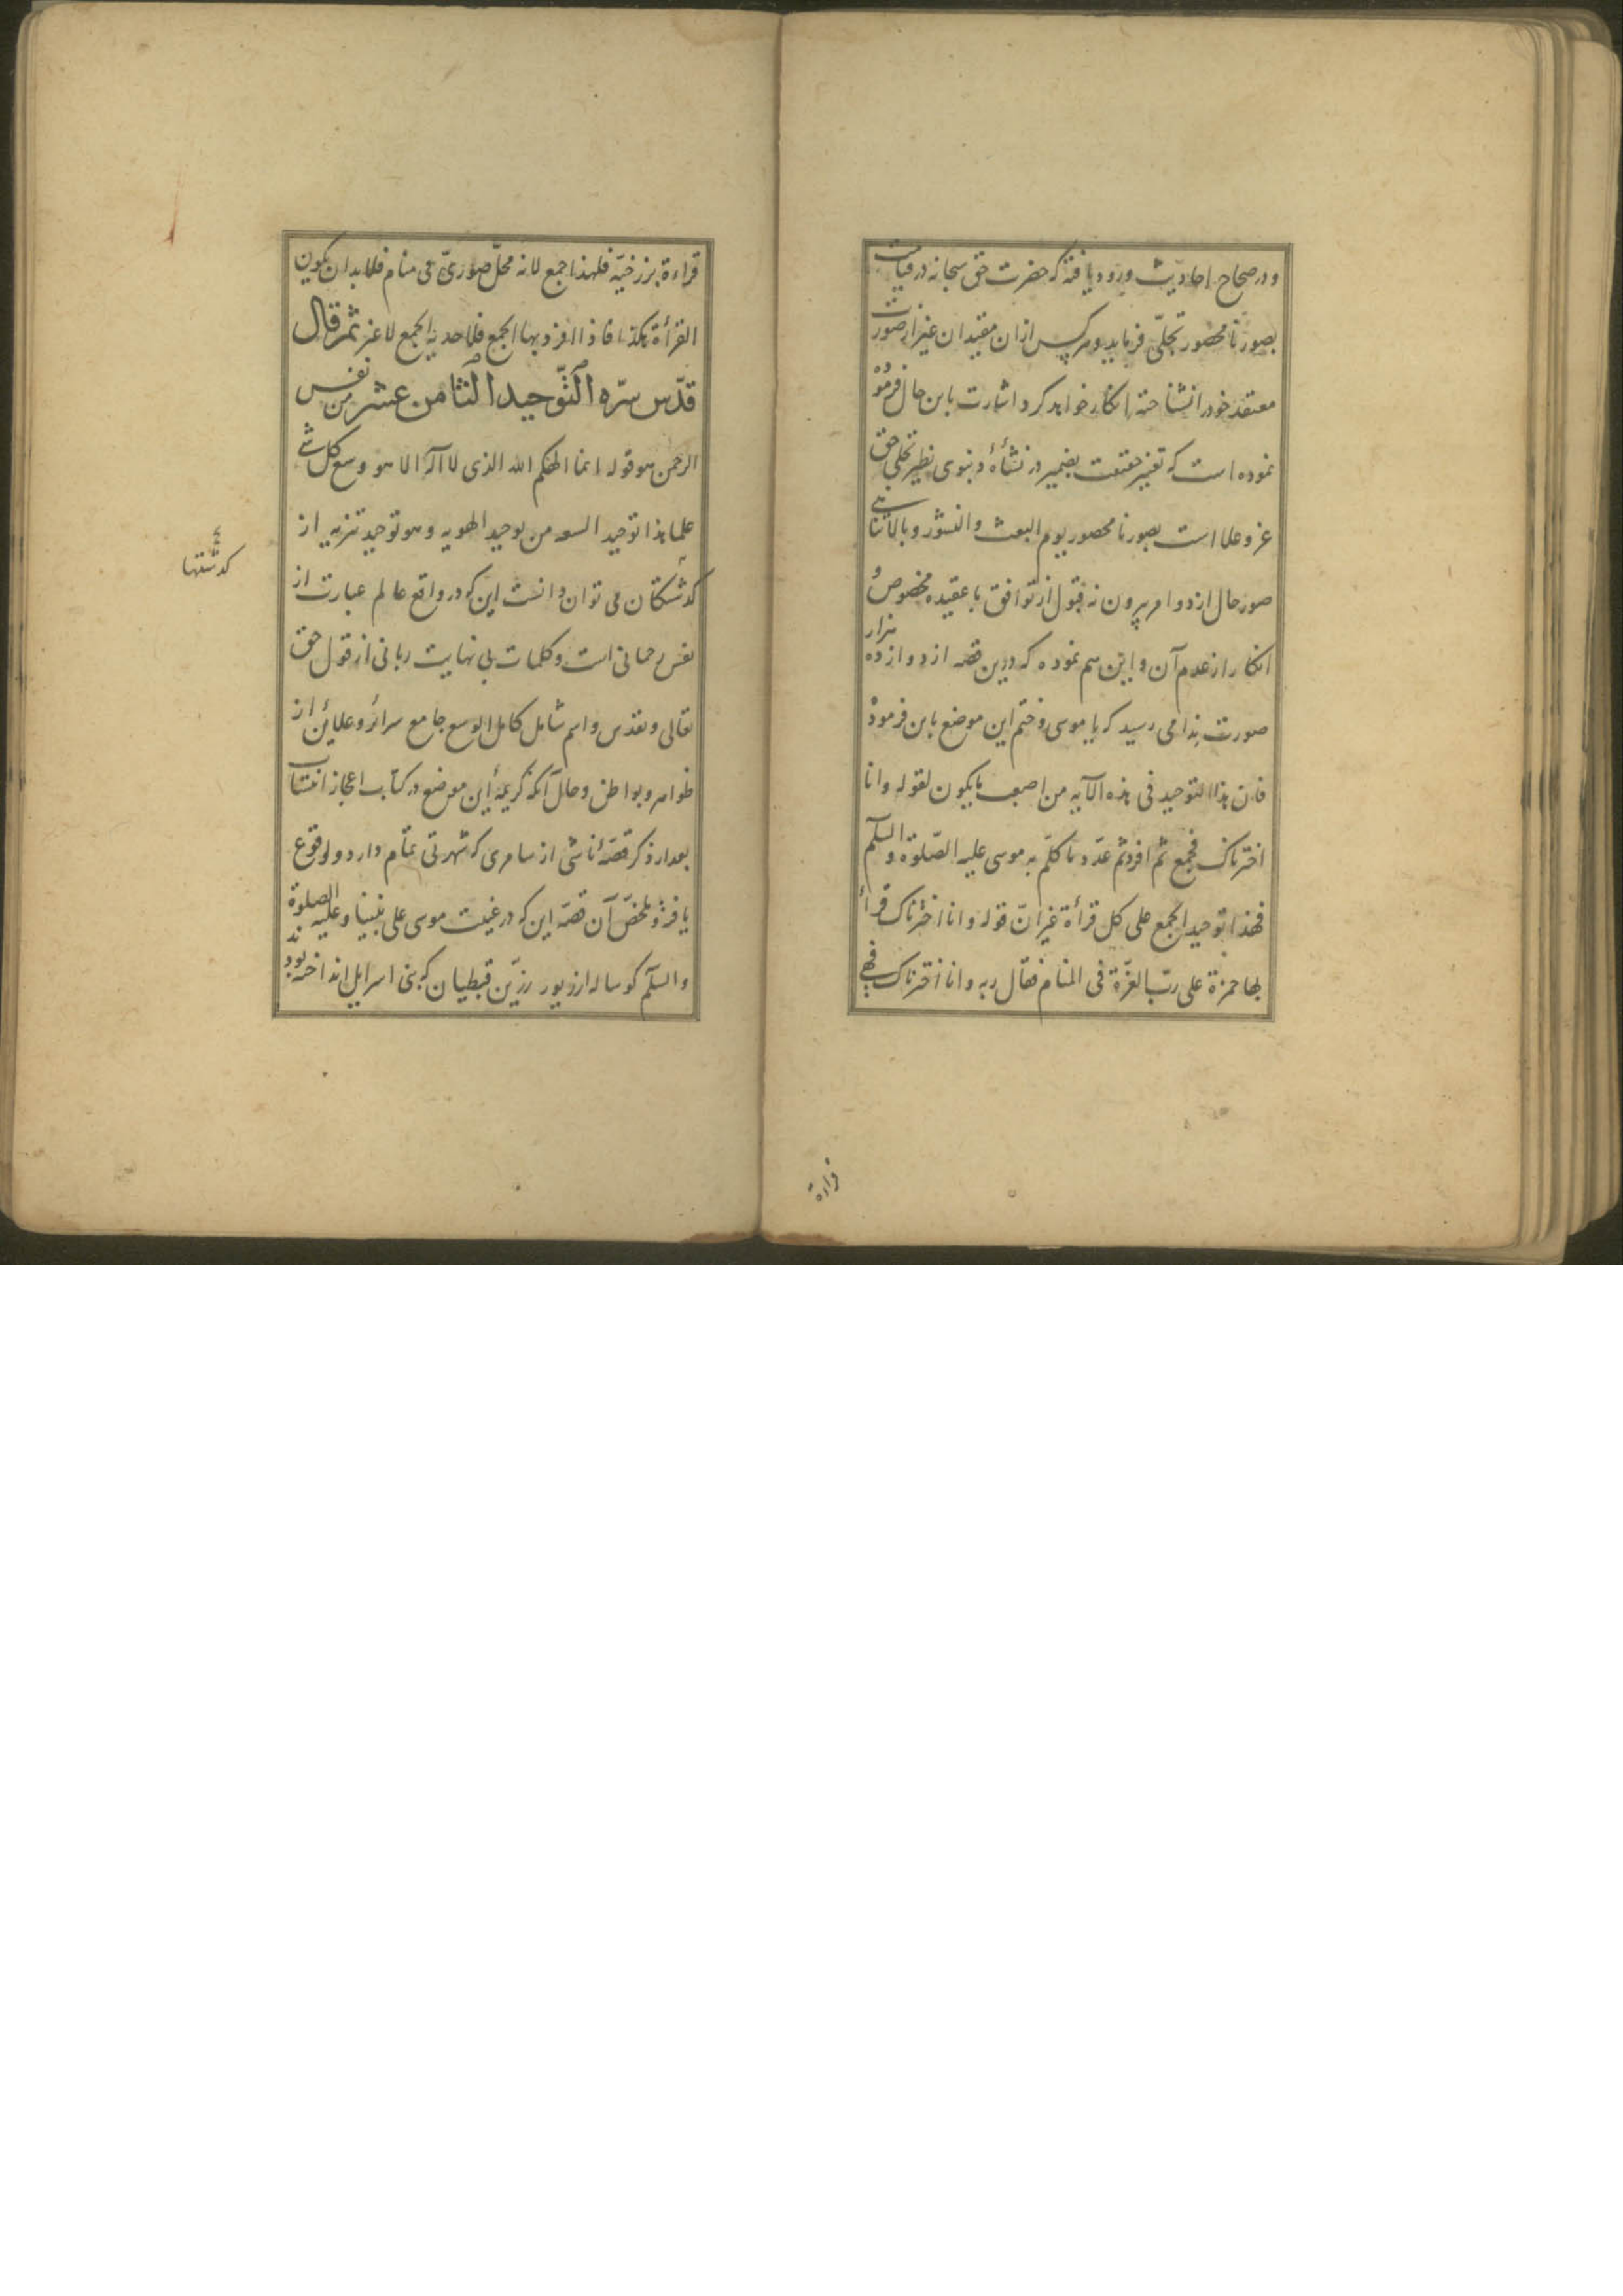 و در صحاح احادیث ورود یافته که حضرت حق سبحانه در قیامت
بصور نامحصور تجلّی فرماید و هرکس ازان مقیدان غیر از صورت
معتقد خود را نشناخته انکار خواهد کرد و اشارت باین حال فرموده
نموده است که تغییر حقیقت بضمیر در نشأهٔ دنیوی نظیر تجلی حق
عز و علا است بصور نامحصور یوم البعث والنشور و بالاتنا
صور حال از دو امر بیرون نه قبول از توافق با عقیده مخصوص و
انکار از عدم آن و این هم نموده که درین قصه از دوازده هزار
صورت ندا می رسید که یا موسی و ختم این موضع باین فرموده
فان هذا التوحید فی هذه الآیه من اصعب ما یکون لقوله وانا
اخترناک فجمع ثم افرد ثم عدّد ما کلّم به موسی علیه الصّلوة والسلم
فهذا توحید الجمع علی کل قرأة غیر انّ قوله وانا اخترناک قرأ
بها حمزة علی ربّ العزّة فی المنام فقال ربه وانا اخترناک فهی
قراءة
قراءة برزخیّه فلهذا جمع لانه محلّ صوریّ فی منام فلابد ان یکون
القرأة هکذا فاذا افرد بها الجمع فلاحدیه الجمع لا غیر ثم قال
قدّس سرّه التّوحید الثامن عشر من نفس
الرحمن هو قوله انما الهکم الله الذی لا اله الا هو وسع کل شی
علما هذا توحید السعه من توحید الهویه وهو توحید تنزیه از
گذشتگان می توان دانست این که در واقع عالم عبارت از
نفس رحمانی است و کلمات بی نهایت ربانی از قول حق
تعالی و تقدس و اسم شامل کامل الوسع جامع سرائر و علائن از
ظواهر و بواطن و حال آنکه کریمهٔ این موضع در کتاب اعجاز انتساب
بعد از ذکر قصّهٔ ناشی از سامری که شهرتی تمام دارد و لوقوع
یافته و ملخّص آن قصّه این که در غیبت موسی علی نبینا و علیه الصلوة
والسلم گوساله از زیور رزّین قبطیان که بنی اسرایل انداخته بودند
گذشتها